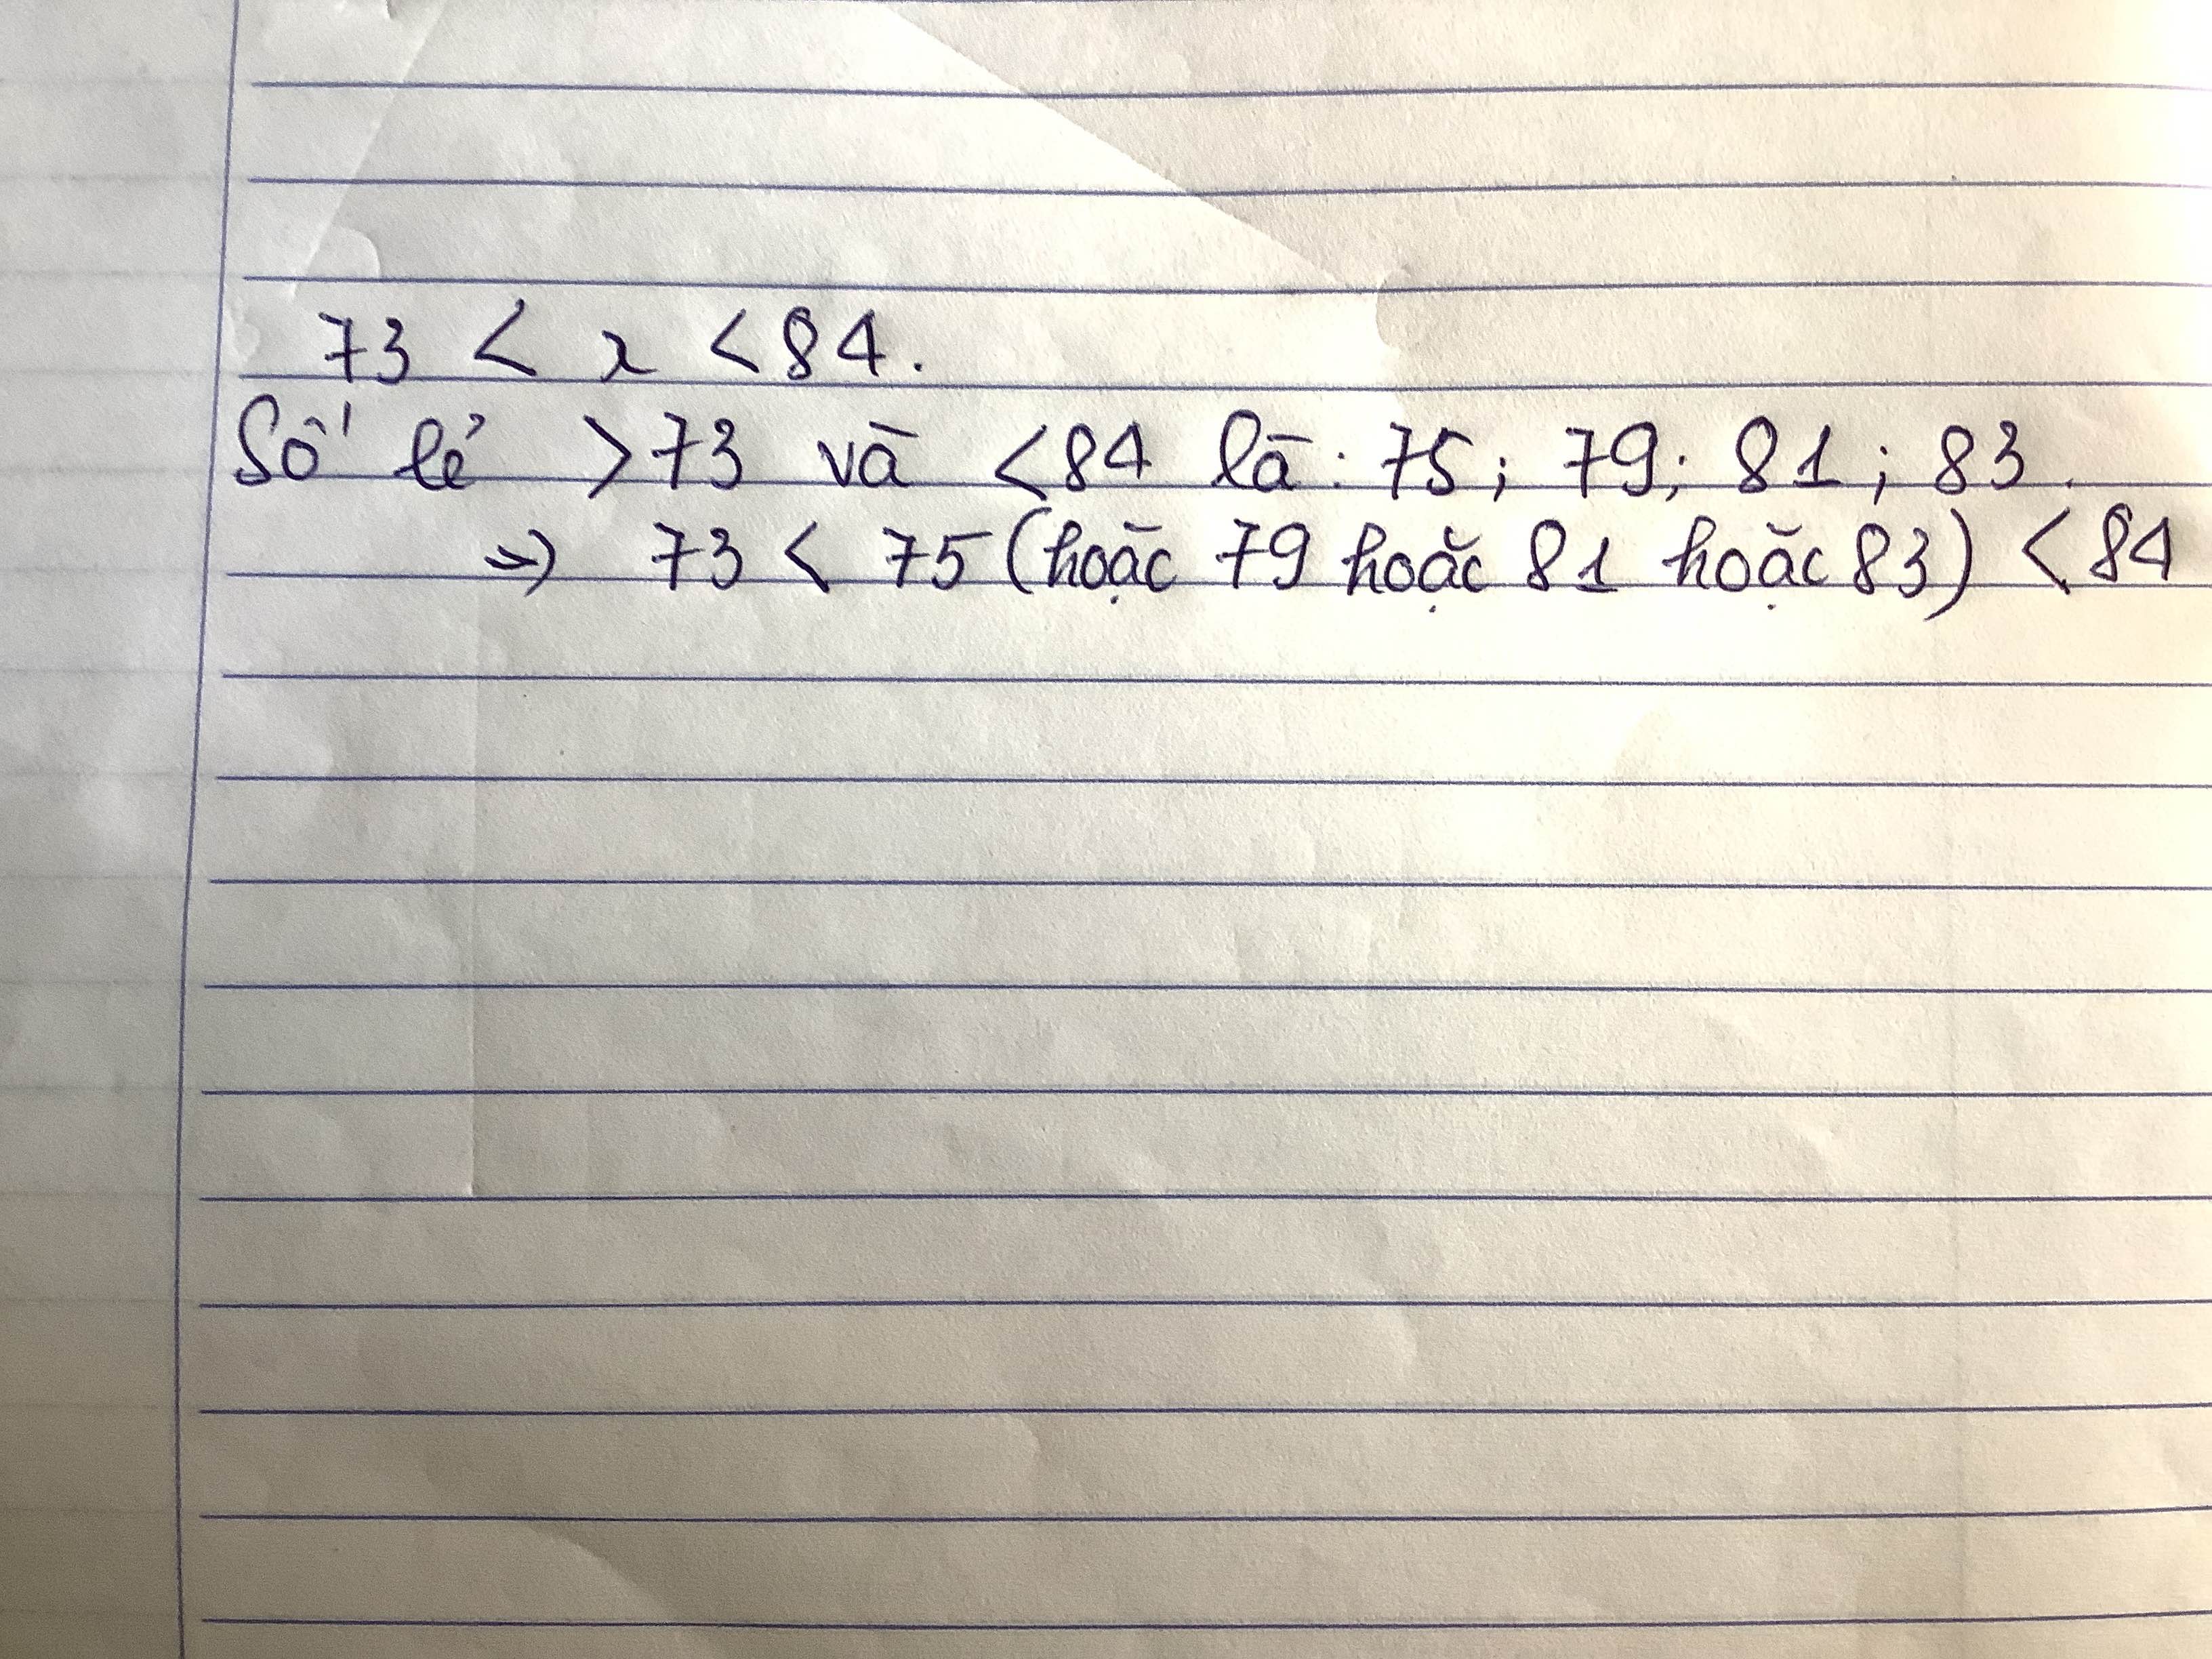 73 < x < 84.
Số lẻ > 73 và < 84 là: 75; 79; 81; 83.
=> 73 < 75 (hoặc 79 hoặc 81 hoặc 83) < 84